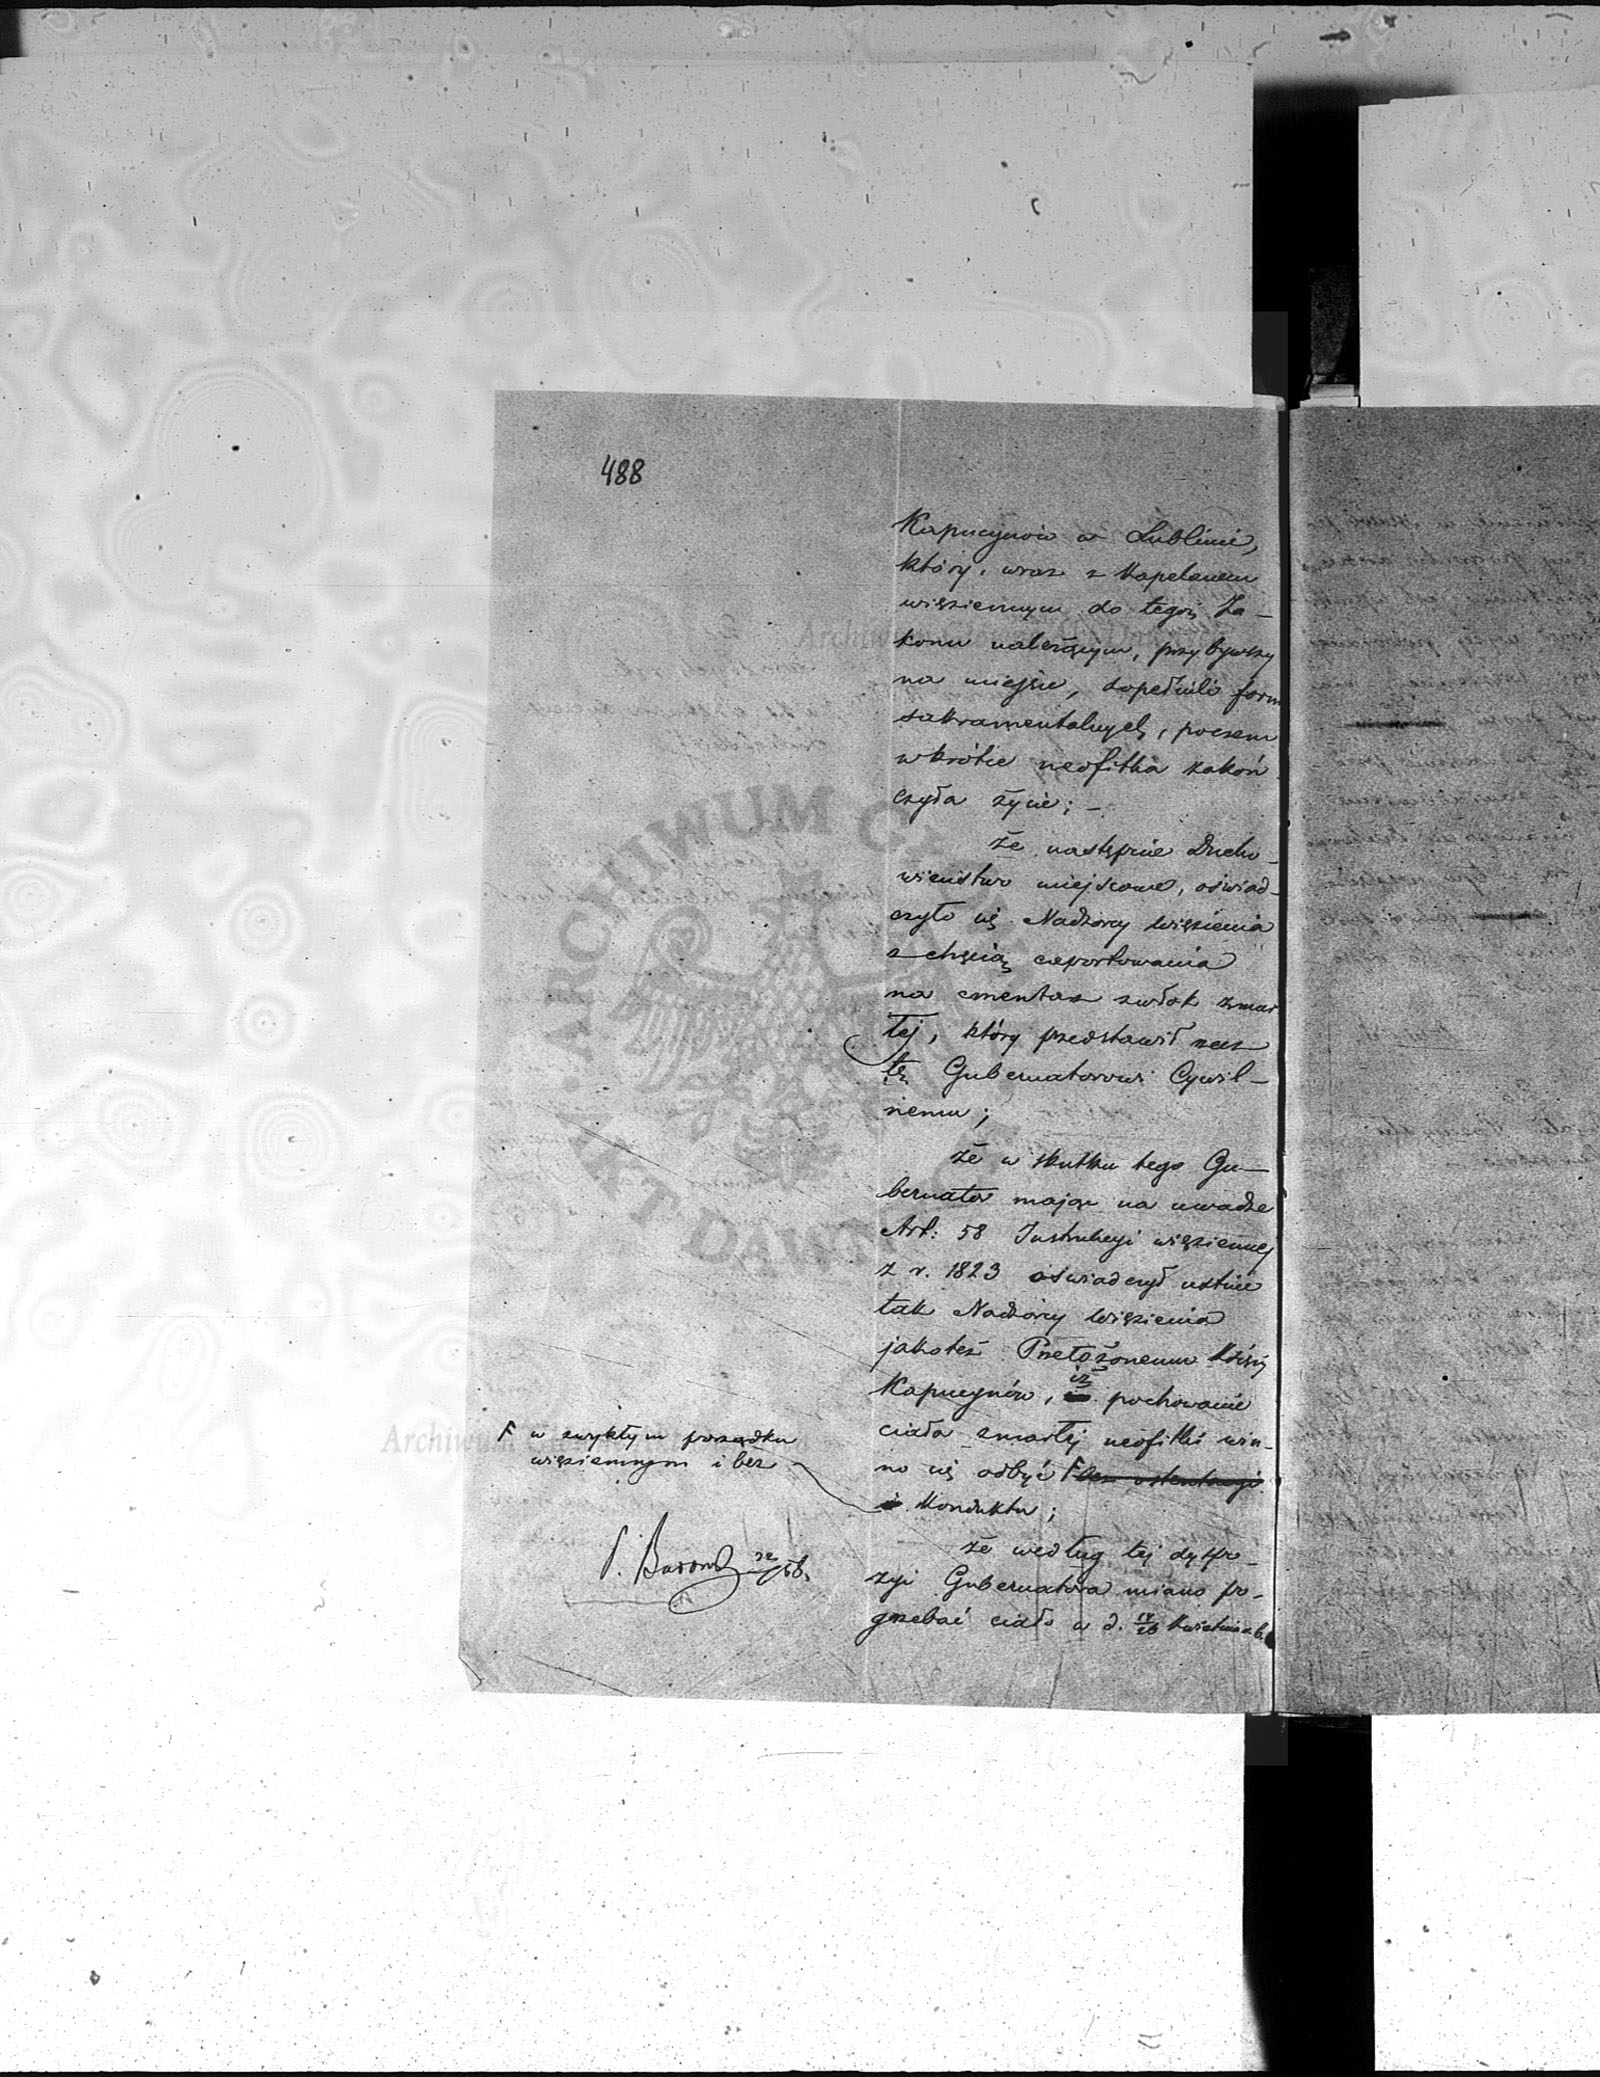 488
Kapucynów w Lublinie,
który, wraz z Kapelanem
więziennym do tegoż Za-
konu należącym, przybywszy
na miejsce, dopełnili form
sakramentalnych, poczem
wkrótce neofitka zakoń
czyła życie; –
że następnie Ducho-
wieństwo miejscowe, oświad-
czyło się Nadzorcy więzienia
z chęcią exportowania
na cmentarz zwłok zmar
łej, który przedstawił rzecz
tę Gubernatorowi Cywil-
nemu;
że w skutku tego Gu-
bernator mając na uwadze
Art: 58 Instrukcyi więziennej
z r. 1823 oświadczył ustnie
tak Nadzorcy więzienia
jakoteż Przełożonemu Księży
iż
Kapucynów, pochowanie
ciała zmarłej neofitki win-
no się odbyć F bez ostentacyi
i Konduktu;
F w zwykłym porządku
więziennym i bez
że według tej dyspo-
zycyi Gubernatora miano po-
grzebać ciało w d. 14/26 Kwietnia r.b.